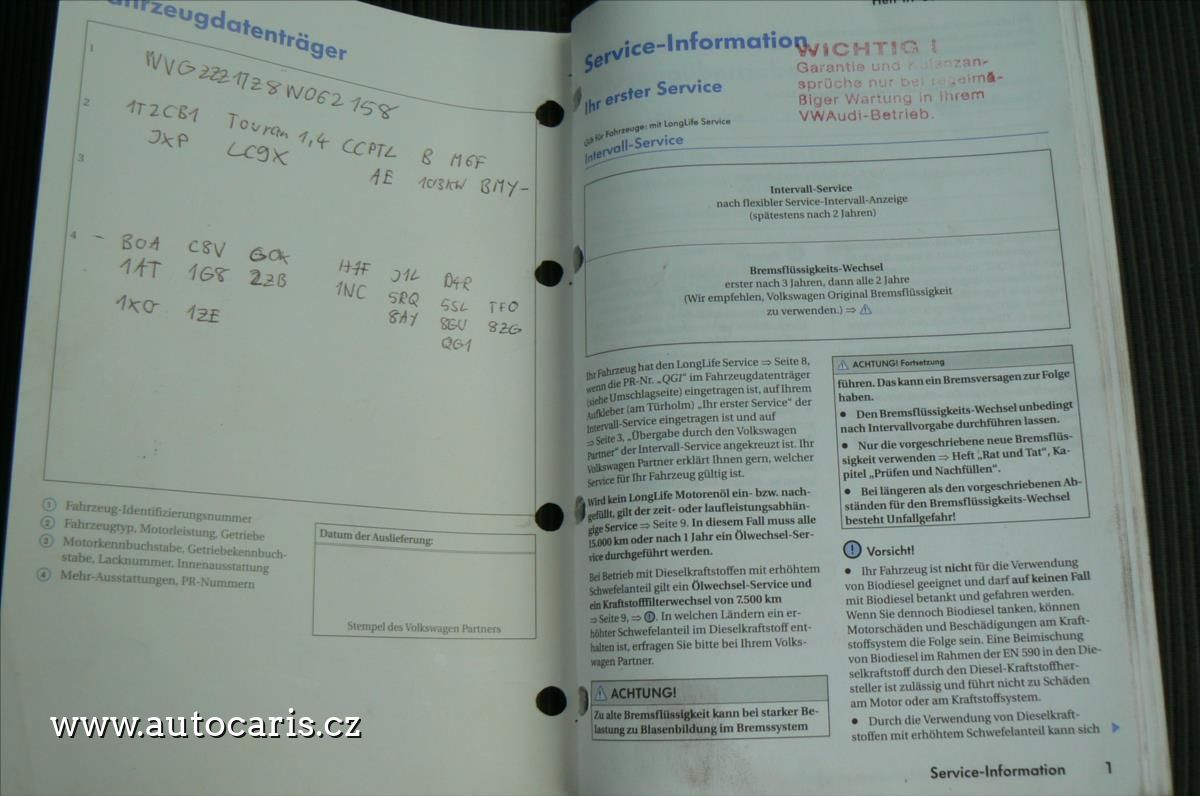 Fahrzeugdatenträger
1
WVGZZZ1TZ8W062158
2
1T2CB1 Touran 1,4 CCPTL B M6F
JXP LC9X AE 103KW BMY-
3
4
- B0A C8V G0K H7F J1L D4R
1AT 1G8 2ZB 1NC 5RQ 5SL TF0
1X0 1ZE 8AY 8GU 8ZG
QG1
1 Fahrzeug-Identifizierungsnummer
2 Fahrzeugtyp, Motorleistung, Getriebe
3 Motorkennbuchstabe, Getriebekennbuch-
stabe, Lacknummer, Innenausstattung
4 Mehr-Ausstattungen, PR-Nummern
Datum der Auslieferung:
Stempel des Volkswagen Partners
www.autocaris.cz
Service-Information
WICHTIG !
Garantie und Kulanzan-
sprüche nur bei regelmä-
ßiger Wartung in Ihrem
VWAudi-Betrieb.
Ihr erster Service
Gilt für Fahrzeuge: mit LongLife Service
Intervall-Service
Intervall-Service
nach flexibler Service-Intervall-Anzeige
(spätestens nach 2 Jahren)
Bremsflüssigkeits-Wechsel
erster nach 3 Jahren, dann alle 2 Jahre
(Wir empfehlen, Volkswagen Original Bremsflüssigkeit
zu verwenden.) ⇒ ⚠
Ihr Fahrzeug hat den LongLife Service ⇒ Seite 8,
wenn die PR-Nr. „QGI“ im Fahrzeugdatenträger
(siehe Umschlagseite) eingetragen ist, auf Ihrem
Aufkleber (am Türholm) „Ihr erster Service“ der
Intervall-Service eingetragen ist und auf
⇒ Seite 3, „Übergabe durch den Volkswagen
Partner“ der Intervall-Service angekreuzt ist. Ihr
Volkswagen Partner erklärt Ihnen gern, welcher
Service für Ihr Fahrzeug gültig ist.
Wird kein LongLife Motorenöl ein- bzw. nach-
gefüllt, gilt der zeit- oder laufleistungsabhän-
gige Service ⇒ Seite 9. In diesem Fall muss alle
15.000 km oder nach 1 Jahr ein Ölwechsel-Ser-
vice durchgeführt werden.
Bei Betrieb mit Dieselkraftstoffen mit erhöhtem
Schwefelanteil gilt ein Ölwechsel-Service und
ein Kraftstofffilterwechsel von 7.500 km
⇒ Seite 9, ⇒ ⓘ. In welchen Ländern ein er-
höhter Schwefelanteil im Dieselkraftstoff ent-
halten ist, erfragen Sie bitte bei Ihrem Volks-
wagen Partner.
⚠ ACHTUNG!
Zu alte Bremsflüssigkeit kann bei starker Be-
lastung zu Blasenbildung im Bremssystem
⚠ ACHTUNG! Fortsetzung
führen. Das kann ein Bremsversagen zur Folge
haben.
● Den Bremsflüssigkeits-Wechsel unbedingt
nach Intervallvorgabe durchführen lassen.
● Nur die vorgeschriebene neue Bremsflüs-
sigkeit verwenden ⇒ Heft „Rat und Tat“, Ka-
pitel „Prüfen und Nachfüllen“.
● Bei längeren als den vorgeschriebenen Ab-
ständen für den Bremsflüssigkeits-Wechsel
besteht Unfallgefahr!
! Vorsicht!
● Ihr Fahrzeug ist nicht für die Verwendung
von Biodiesel geeignet und darf auf keinen Fall
mit Biodiesel betankt und gefahren werden.
Wenn Sie dennoch Biodiesel tanken, können
Motorschäden und Beschädigungen am Kraft-
stoffsystem die Folge sein. Eine Beimischung
von Biodiesel im Rahmen der EN 590 in den Die-
selkraftstoff durch den Diesel-Kraftstoffher-
steller ist zulässig und führt nicht zu Schäden
am Motor oder am Kraftstoffsystem.
● Durch die Verwendung von Dieselkraft-
stoffen mit erhöhtem Schwefelanteil kann sich
Service-Information 1